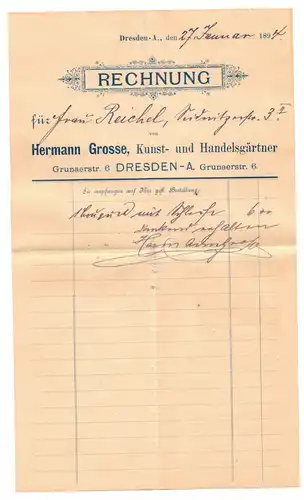 Dresden-A., den 27 Januar 1894
RECHNUNG
für Frau Reichel, Seidnitzerstr. 3 II
von
Hermann Grosse, Kunst- und Handelsgärtner
Grunaerstr. 6 DRESDEN-A. Grunaerstr. 6.
Sie empfangen auf Ihre gefl. Bestellung:
1 Bouquet mit Schleife 6 00
dankend erhalten
Grosse